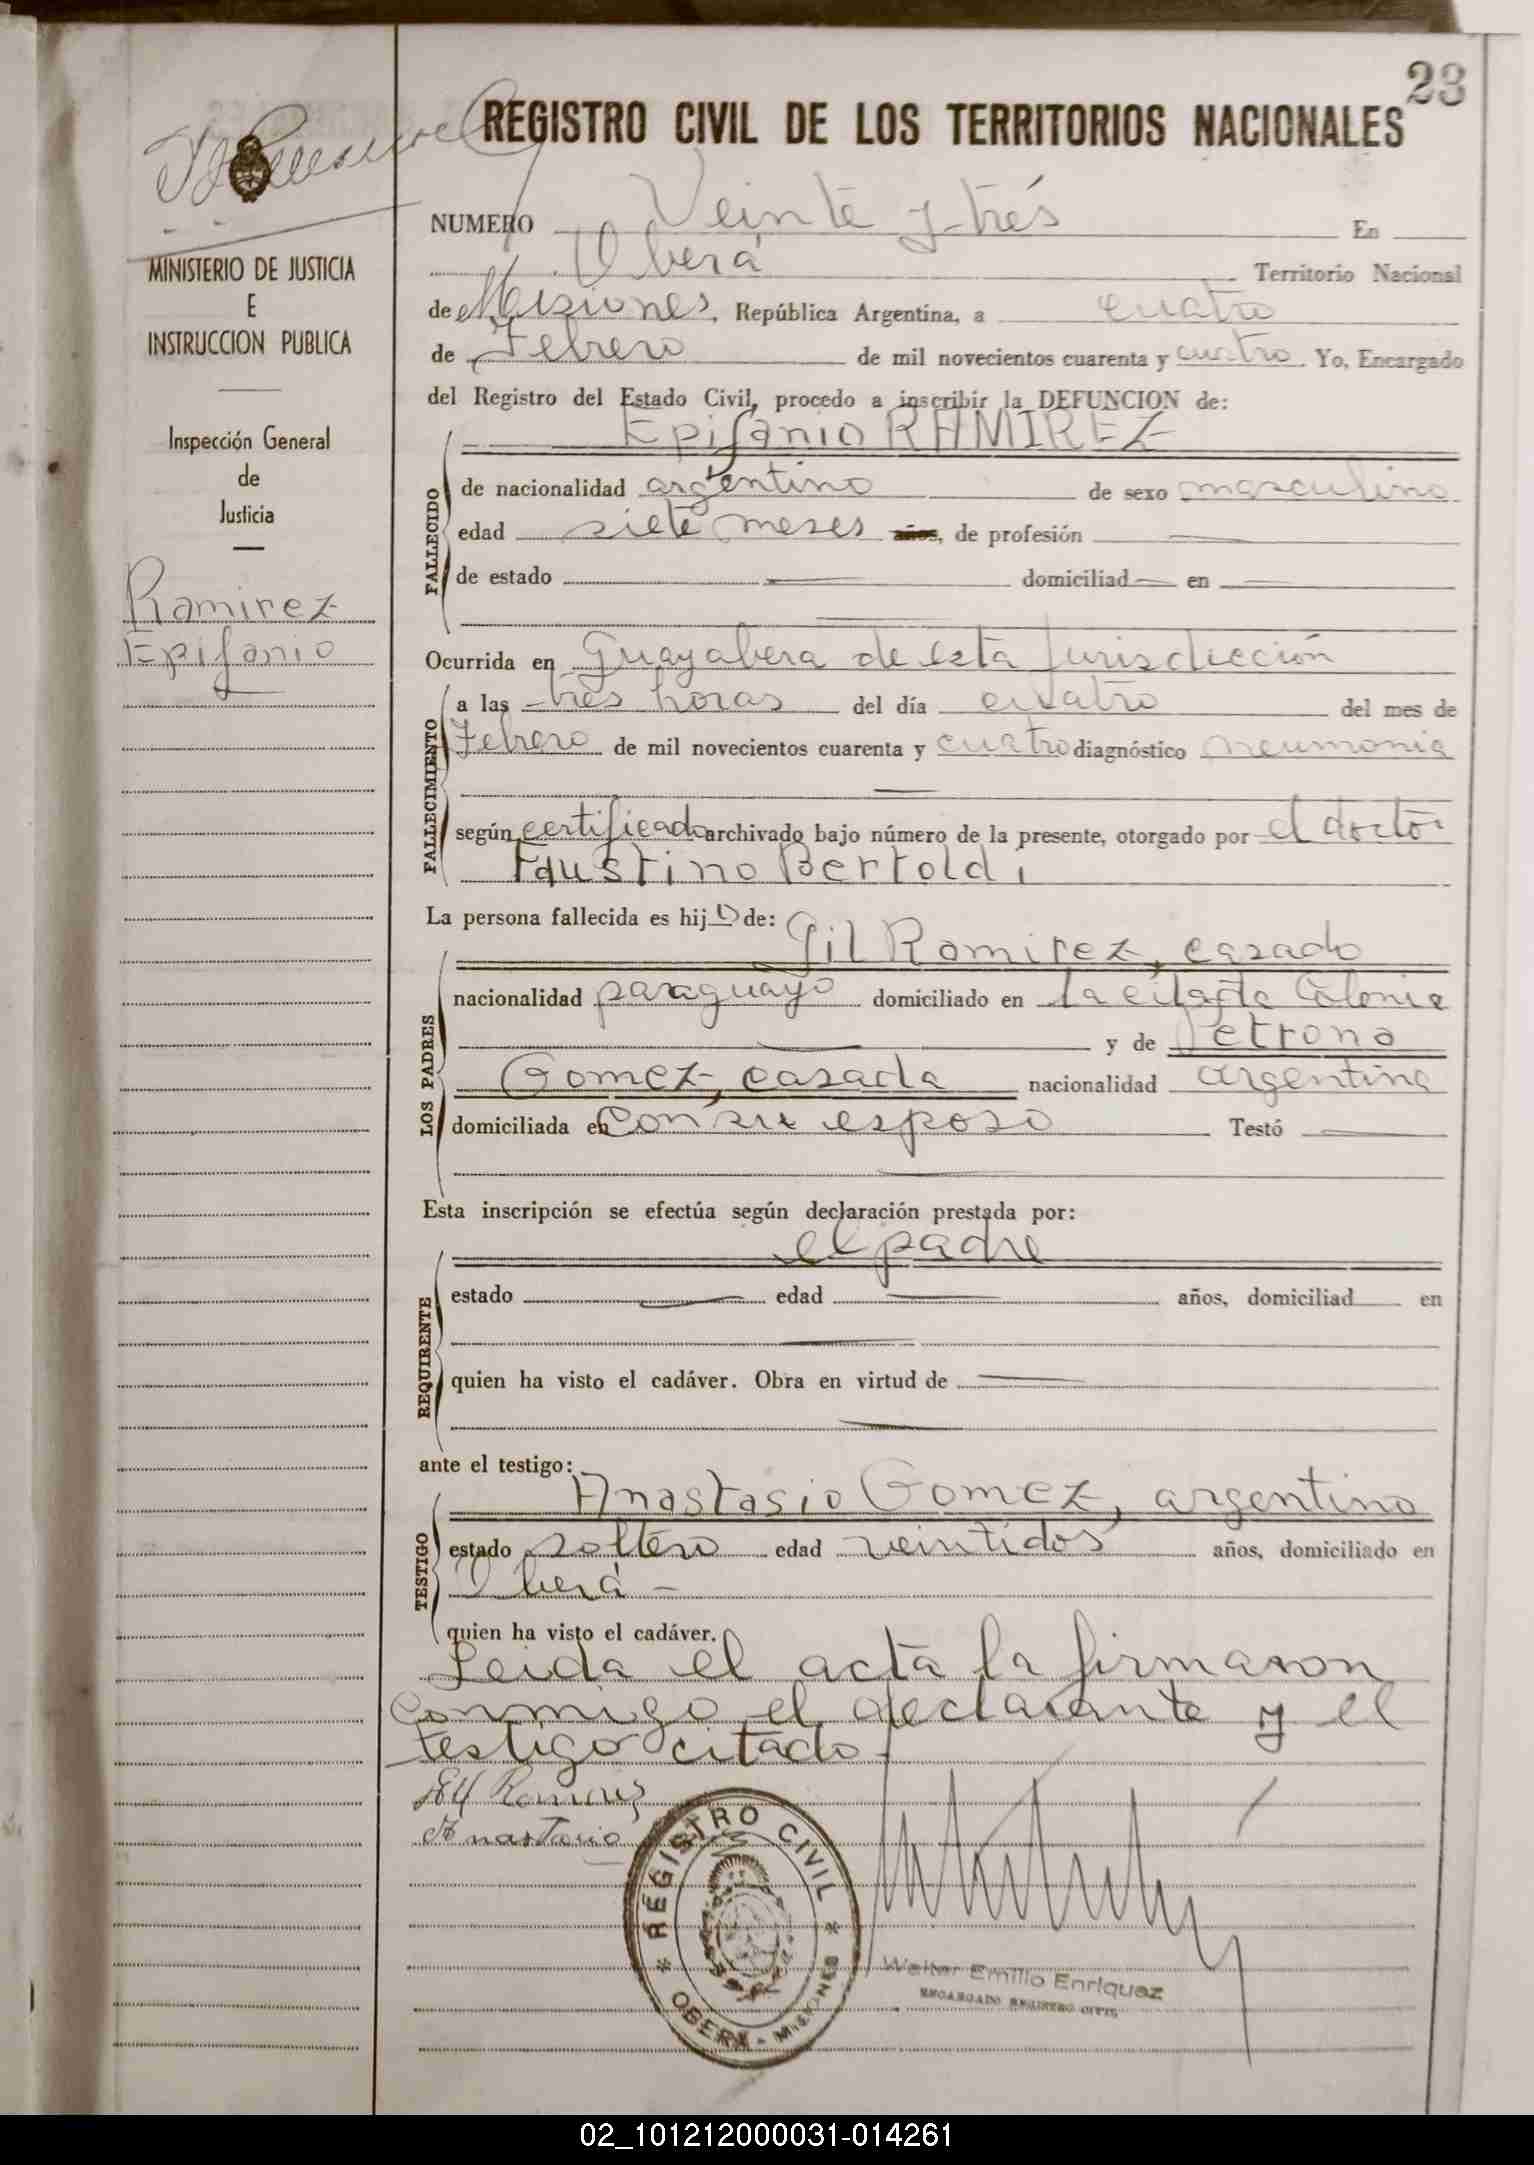 23
REGISTRO CIVIL DE LOS TERRITORIOS NACIONALES
MINISTERIO DE JUSTICIA
E
INSTRUCCION PUBLICA
Inspección General
de
Justicia
Ramirez
Epifanio
NUMERO Veinte y trés En
Oberá Territorio Nacional
de Misiones, República Argentina, a cuatro
de Febrero de mil novecientos cuarenta y cuatro Yo, Encargado
del Registro del Estado Civil, procedo a inscribir la DEFUNCION de:
Epifanio RAMIREZ
FALLECIDO
de nacionalidad argentino de sexo masculino
edad siete meses años, de profesión
de estado domiciliad en
Ocurrida en Guayabera de esta jurisdicción
FALLECIMIENTO
a las tres horas del día cuatro del mes de
Febrero de mil novecientos cuarenta y cuatro diagnóstico neumonia
según certificado archivado bajo número de la presente, otorgado por el doctor
Faustino Bertoldi
La persona fallecida es hijo de:
LOS PADRES
Gil Ramirez, casado
nacionalidad paraguayo domiciliado en la citada Colonia
y de Petrona
Gomez, casada nacionalidad argentina
domiciliada en con su esposo Testó
Esta inscripción se efectúa según declaración prestada por:
REQUIRENTE
el padre
estado edad años, domiciliad en
quien ha visto el cadáver. Obra en virtud de
ante el testigo:
TESTIGO
Anastasio Gomez, argentino
estado soltero edad veintidos años, domiciliado en
Oberá -
quien ha visto el cadáver.
Leida el acta la firmaron
conmigo el declarante y el
testigo citado.
Anastasio
REGISTRO CIVIL
OBERA - MISIONES
Walter Emilio Enriquez
ENCARGADO REGISTRO CIVIL
02_101212000031-014261